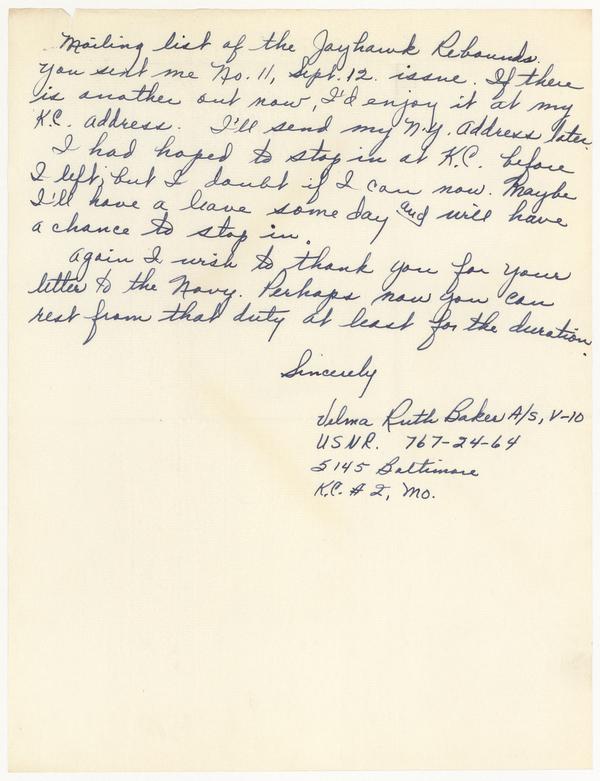 Mailing list of the Jayhawk Rebounds.
You sent me No. 11, Sept. 12. issue. If there
is another out now, I'd enjoy it at my
K.C. address. I'll send my N.Y. address later.
I had hoped to stop in at K.C. before
I left, but I doubt if I can now. Maybe
I'll have a leave some day and will have
a chance to stop in.
Again I wish to thank you for your
letter to the Navy. Perhaps now you can
rest from that duty at least for the duration.
Sincerely
Velma Ruth Baker A/S, V-10
USNR. 767-24-64
5145 Baltimore
K.C. # 2, Mo.